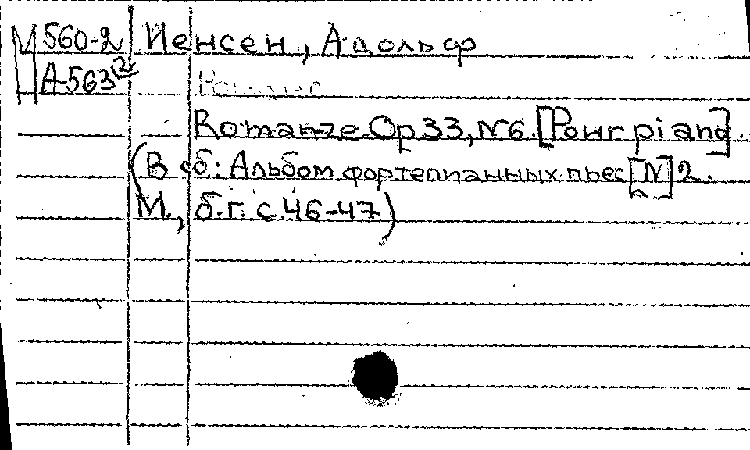 М 560-2 Иенсен, Адольф
А-563
Romanze. Op 33, №6. [Pour piano]
(В сб: Альбом фортепианных пьес [N] 2.
М., б.г. с 46-47)